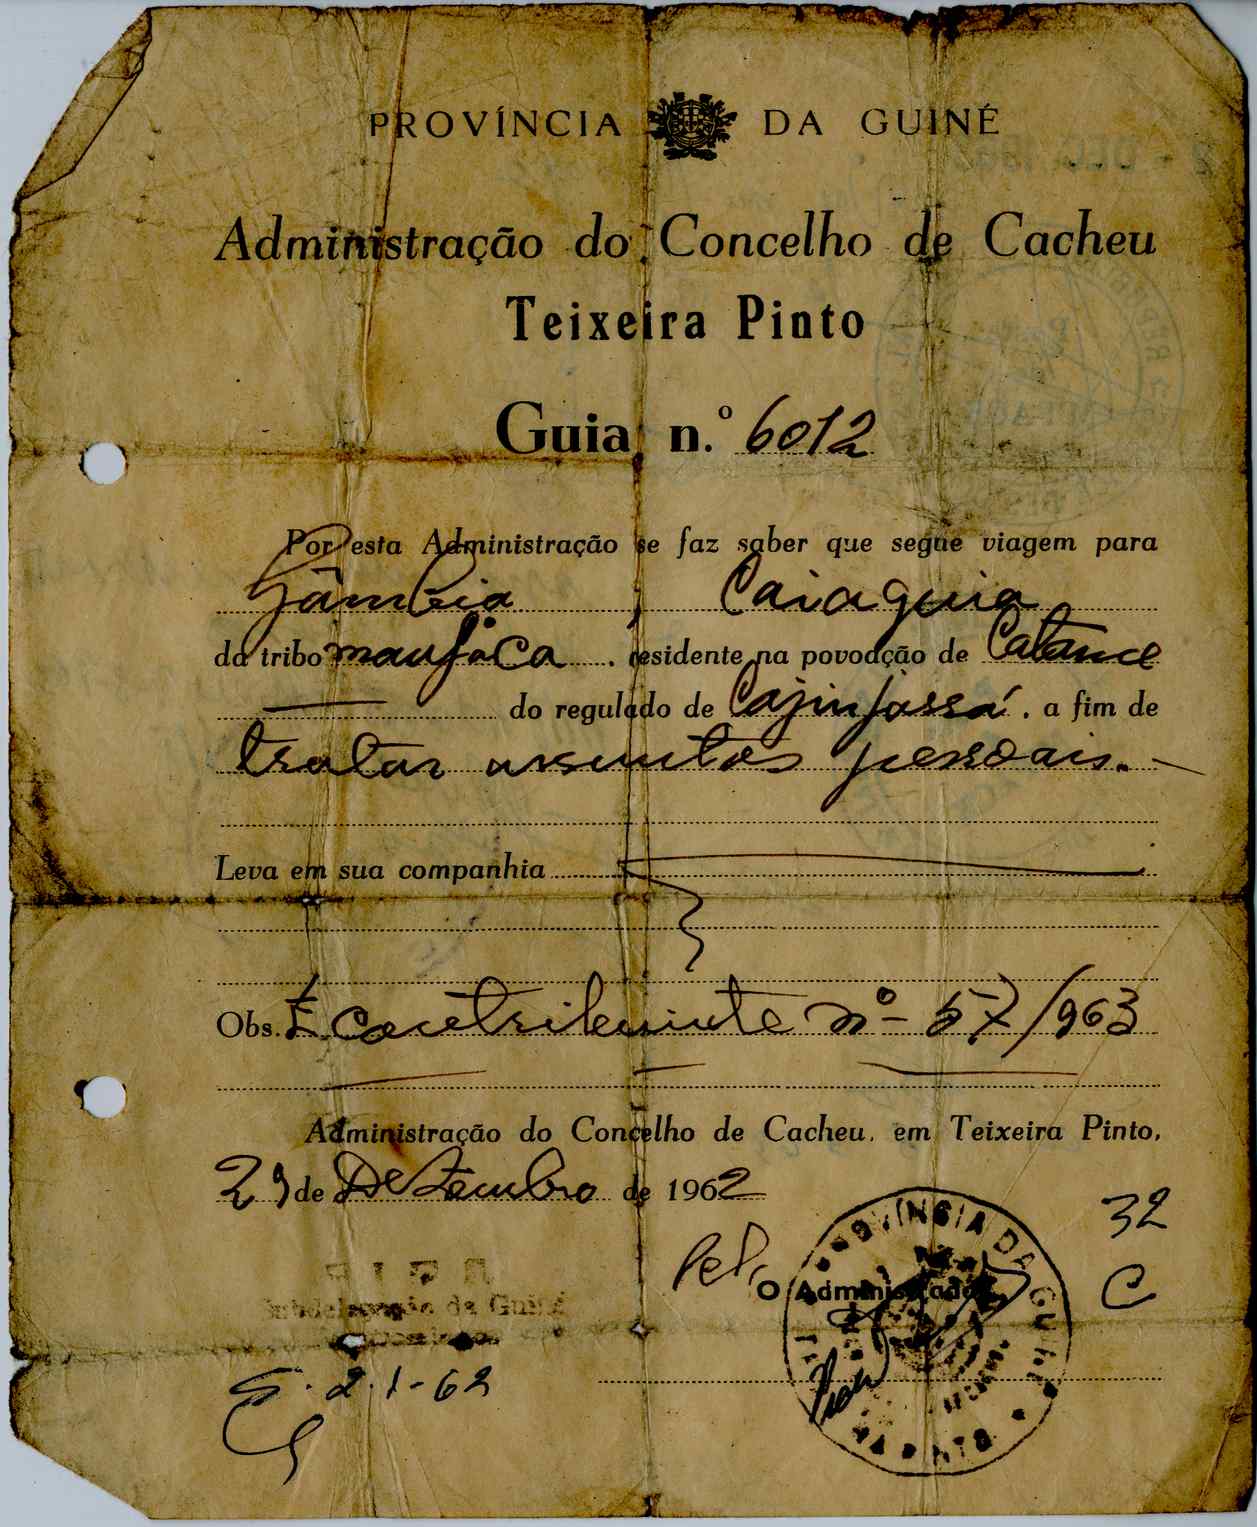 PROVÍNCIA DA GUINÉ
Administração do Concelho de Cacheu
Teixeira Pinto
Guia n.º 6012
Por esta Administração se faz saber que segue viagem para
Gâmbia, Caiaguia
da tribo manjaca. residente na povoação de
do regulado de Cajinjassá. a fim de
tratar assuntos pessoais.
Leva em sua companhia
Obs. É contribuinte nº 57/963
Administração do Concelho de Cacheu, em Teixeira Pinto,
29 de Dezembro de 1962
32
C
Pel,
O Administrador
PROVÍNCIA DA GUINÉ
PIDE
Subdelegação da Guiné
2-1-62